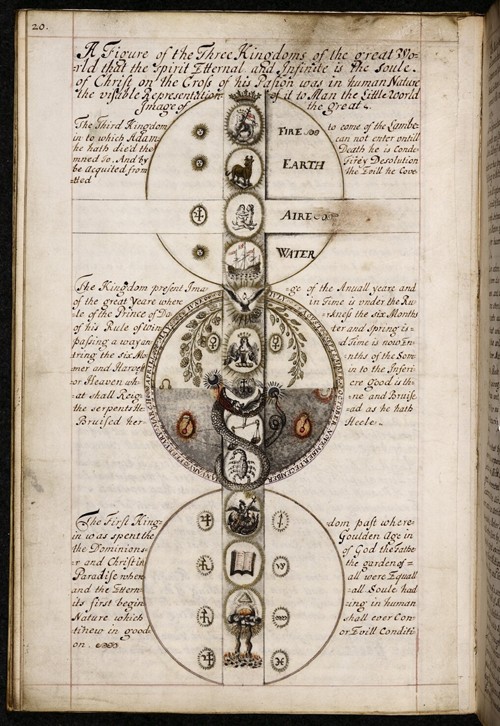 20.
A Figure of the Three Kingdoms of the great Wo=
rld that the Spirit Etternal and Infinite is the soule
of Christ on the Cross of his Pasion was in human Nature
the visible Representation of it to Man the Little World
Image of the great
The Third Kingdom to come of the Lambe
in to which Adam can not enter until
he hath die'd the Death he is Conde
mned To. And by Desolution
be acquited from the Evill he Cove
tted
FIRE
EARTH
AIRE
WATER
The Kingdom present Ima= ge of the Anuall yeare and
of the great Yeare where in Time is under the Ru
le of the Prince of Da rkness the six Months
of his Rule of Win ter and Spring is
passing away an d Time is now En=
tring the six Mo nths of the Som
mer and Harvest in to the Inferi
or Heaven wh ere Good is the
at shall Reig ne and Bruise
the serpents He ad as he hath
Bruised her Heele
The First King= dom past where
in was spent the Goulden Age in
the Dominions of God the Fathe
r and Christ in the garden of =
Paradise when all were Equall
and the Etern =all Soule had
its first begin ing in human
Nature which shall ever Con=
tinew in good or Evill Conditi
on.